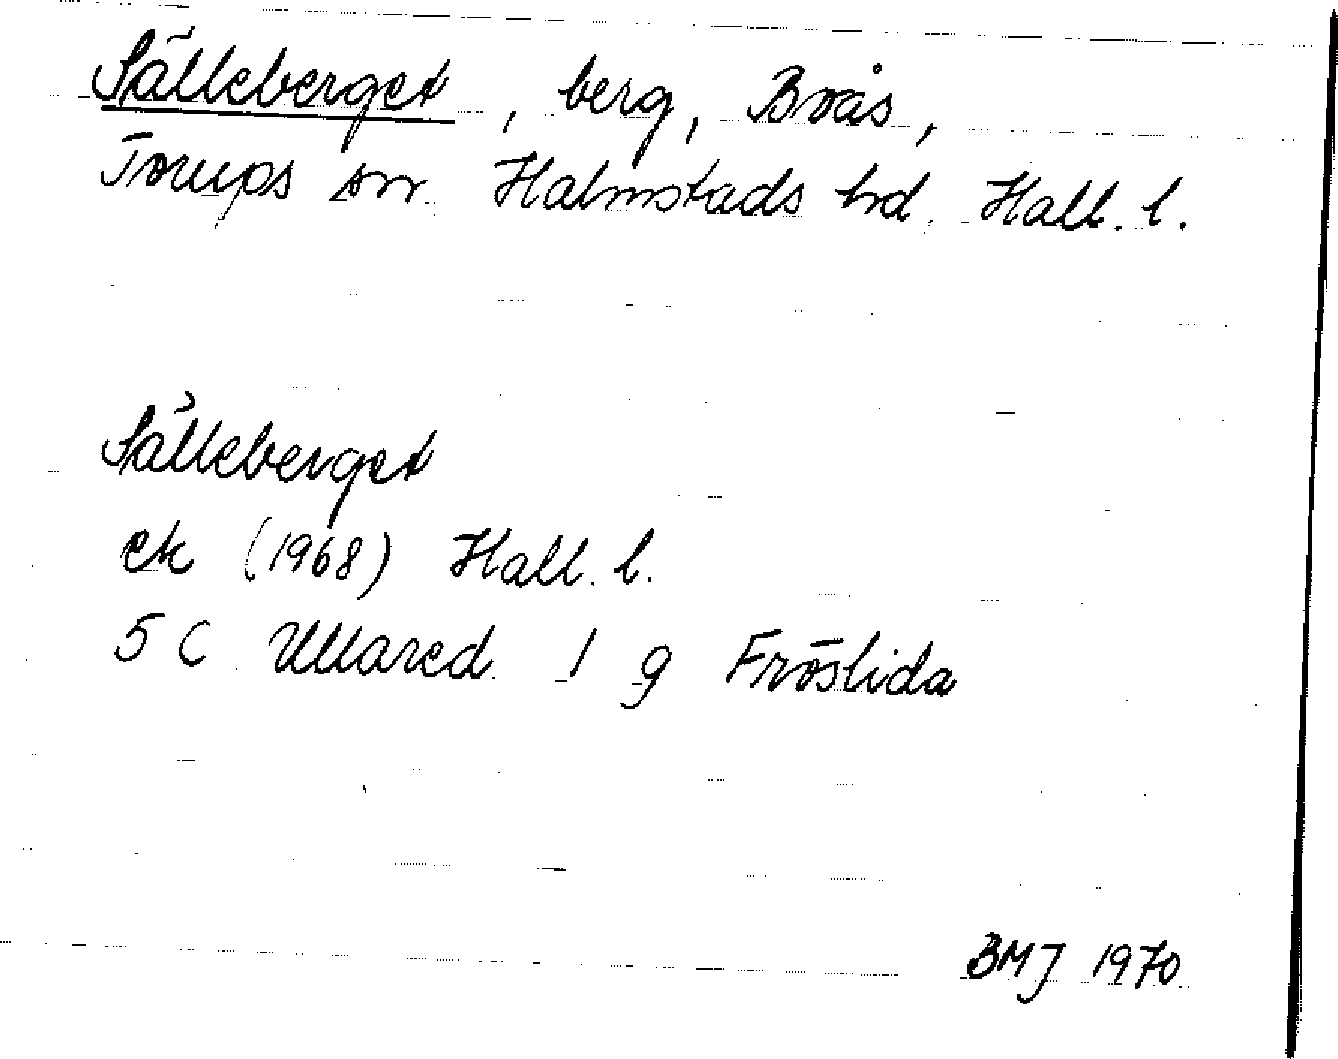 Sälleberget, berg, Brås,
Torups sn. Halmstads hd. Hall. l.
Sälleberget
ek (1968) Hall. l.
5 C Ullared 1 g Fröslida
BMJ 1970